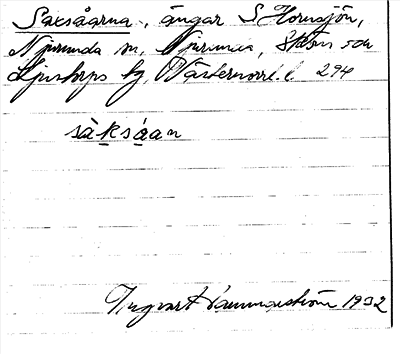 Saxsåarna, ängar S Hornsjön,
Njurunda sn, Njurunda, Sköns och
Ljustorps tg, Västernorrl. l 294
sàksáan
Ingvart Hammarström 1932